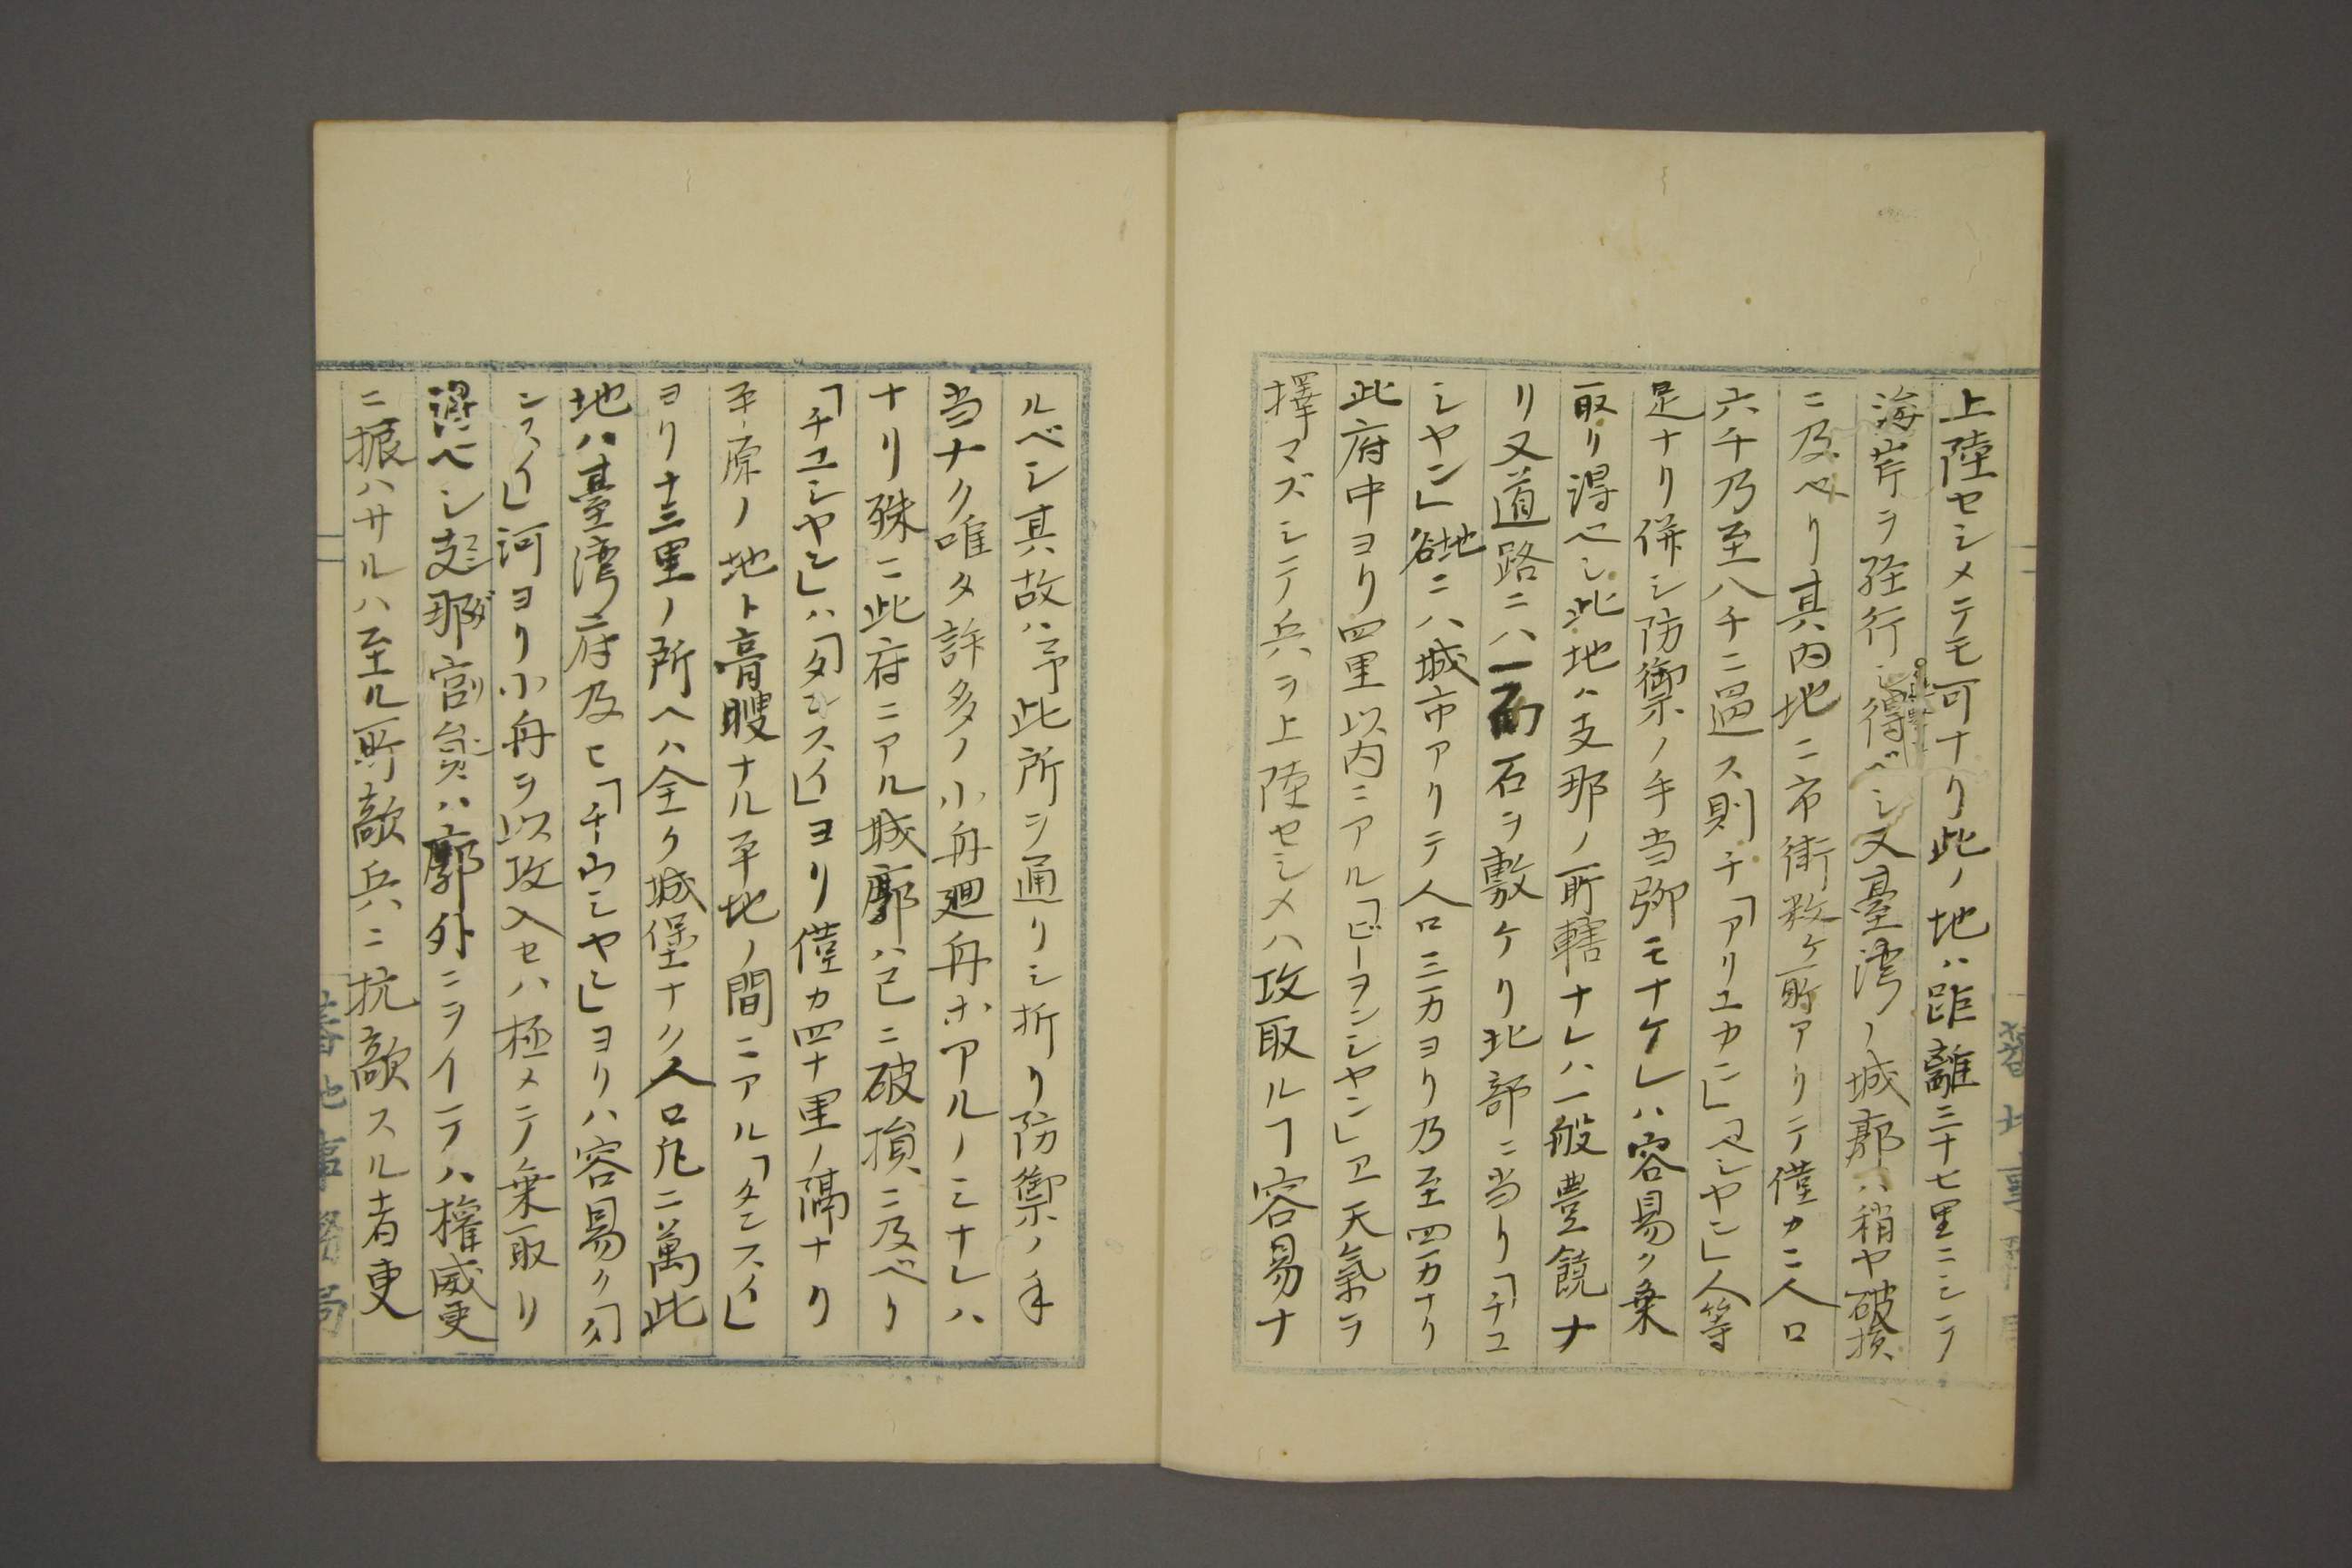 上陸セシメテモ可ナリ此ノ地ハ距離三十七里ニシテ
海岸ヲ経行シ得ベシ又臺湾ノ城郭ハ稍ヤ破損
ニ及ベリ其内地ニ市街数ヶ所アリテ僅カニ人口
六千乃至八千ニ過ス則チ「アリエカン」「ペシヤン」人等
足ナリ併シ防御ノ手当弥モナケレハ容易ク乗
取リ得ベシ此地ハ支那ノ所轄ナレハ一般豊饒ナ
リ又道路ニハ一面石ヲ敷ケリ北部ニ当リ「チユ
シヤン」谷地ニハ城市アリテ人口三万ヨリ乃至四万ナリ
此府中ヨリ四里以内ニアル「ビーヨンシヤン」ヱ天氣ヲ
擇マズシテ兵ヲ上陸セシメハ攻取ルヿ容易ナ
ルベシ其故ハ予此所ヲ通リシ折リ防禦ノ手
当ナク唯タ許多ノ小舟廻舟ホアルノミナレハ
ナリ殊ニ此府ニアル城廓ハ已ニ破損ニ及ベリ
「チユシヤン」ハ「タンスイ」ヨリ僅カ四十里ノ隔ナリ
平原ノ地ト膏腴ナル平地ノ間ニアル「タンスイ」
ヨリ十三里ノ所ヘハ全ク城堡ナク人口凡二萬此
地ハ臺湾府及ヒ「チユシヤン」ヨリハ容易ク「タ
ンスイ」河ヨリ小舟ヲ以攻入セハ極メテ乗取リ
得ベシ支那官員ハ廓外ニヲイテハ権威更
ニ振ハサルハ至ル所敵兵ニ抗敵スル者更
蕃地事務局